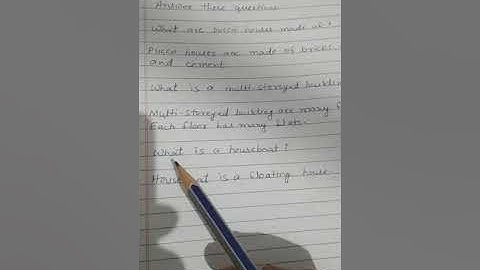 Answer these question
What are pucca houses made of?
Pucca houses are made of bricks
and cement
What is a multi-storeyed building
Multi-storeyed building are many
Each floor has many flats.
What is a houseboat?
Houseboat is a floating house